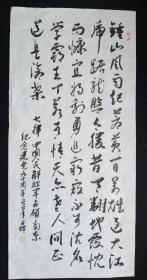 鍾山风雨起苍黄百万雄师过大江
虎踞龙盘今胜昔天翻地覆慨
而慷宜将剩勇追穷寇不可沽名
学霸王天若有情天亦老人间正
道是沧桑
七律 中国人民解放军占领南京
纪念建党九十周年